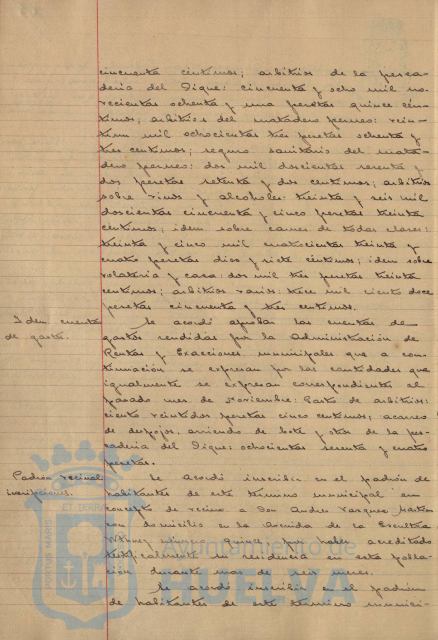 cincuenta céntimos; arbitrios de la pesca-
dería del Dique: cincuenta y ocho mil no-
vecientas ochenta y una pesetas quince cén-
timos; arbitrios del matadero permeo: vein-
tiun mil ochocientas tres pesetas ochenta y
tres centimos; seguro sanitario del mata-
dero permeo: dos mil doscientas sesenta y
dos pesetas setenta y dos centimos; arbitrios
sobre vinos y alcoholes: treinta y seis mil
doscientas cincuenta y cinco pesetas treinta
céntimos; idem sobre carnes de todas clases:
treinta y cinco mil cuatrocientas treinta y
cuatro pesetas diez y siete céntimos; idem sobre
volatería y caza: dos mil tres pesetas treinta
centimos; arbitrios varios: trece mil ciento doce
pesetas cincuenta y tres centimos.
Idem cuenta
de gastos.
Se acordó aprobar las cuentas de
gastos rendidas por la Administración de
Rentas y Exacciones municipales que a con-
tinuación se expresan por las cantidades que
igualmente se expresan correspondientes al
pasado mes de Noviembre: Gasto de arbitrios:
ciento veintidos pesetas cinco centimos; acarreo
de despojos, arriendo de bote y otros de la pes-
cadería del Dique: ochocientas sesenta y cuatro
pesetas.
Padrón vecinal
inscripciones.
Se acordó inscribir en el padrón de
habitantes de este término municipal en
concepto de vecino a Don Andres Vazquez
con domicilio en la Avenida de la Escultora
Withney número quince por haber acreditado
testificalmente su residencia en esta pobla-
ción durante mas de seis meses.
Se acordó inscribir en el padrón
de habitantes de este termino munici-
PORTUS MARIS ET TERRAE
Ayuntamiento de
HUELVA